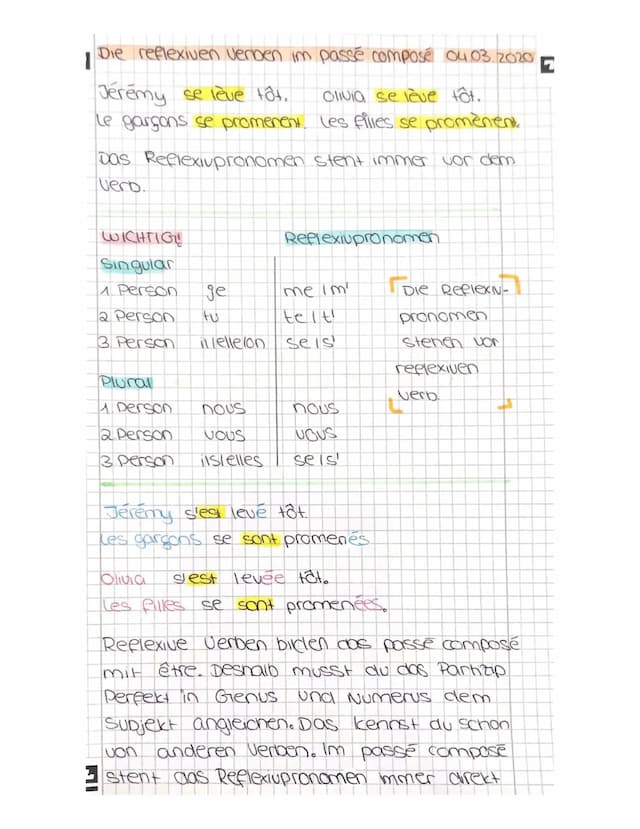 Die reflexiven Verben im passé composé 04.03.2020
Jérémy se lève tôt. Olivia se lève tôt.
Le garçons se promenent. Les filles se promènent.
Das Reflexivpronomen steht immer vor dem
Verb.
WICHTIG!! Reflexivpronomen
Singular
1 Person ge me/m' Die Reflexiv-
2 Person tu te/t' pronomen
3. Person il/elle/on se/s' stehen vor
reflexiven
Plural Verb.
1. Person nous nous
2 Person vous vous
3 Person ils/elles se/s'
Jérémy s'est levé tôt.
Les garçons se sont promenés
Olivia s'est levée tôt.
Les filles se sont promenées.
Reflexive Verben bilden das passé composé
mit être. Deshalb musst du das Partizip
Perfekt in Genus und Numerus dem
Subjekt angleichen. Das kennst du schon
von anderen Verben. Im passé composé
steht das Reflexivpronomen immer direkt